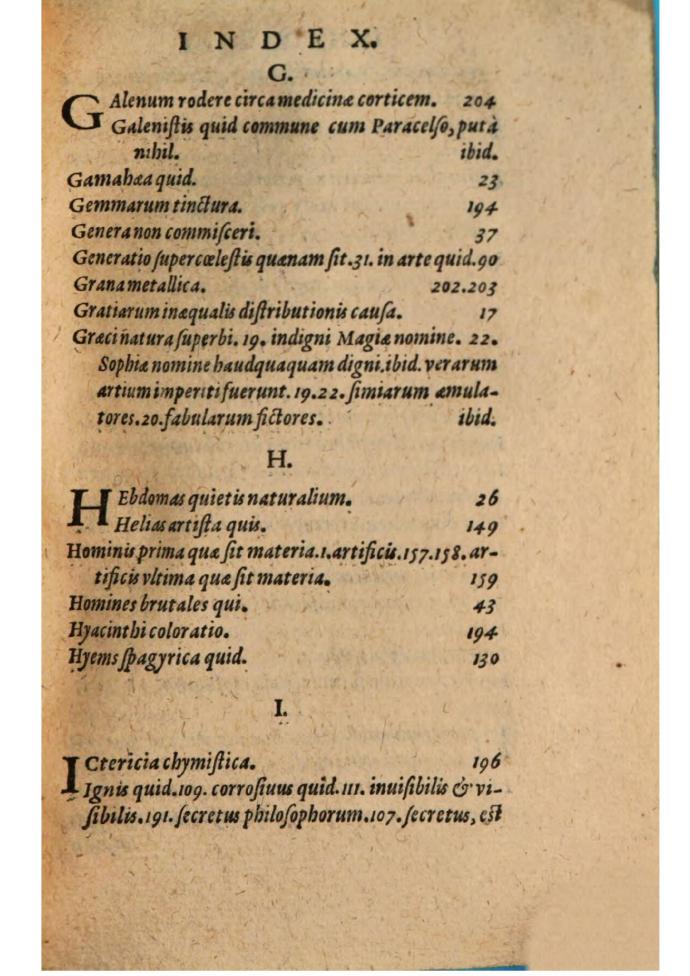 INDEX.
G.
GAlenum rodere circa medicinæ corticem. 204
Galeniſtis quid commune cum Paracelſo, putà
nihil. ibid.
Gamahæa quid. 23
Gemmarum tinctura. 194
Genera non commiſceri. 37
Generatio ſupercœleſtis quænam ſit. 31. in arte quid. 90
Grana metallica. 202.203
Gratiarum inæqualis diſtributionis cauſa. 17
Græci natura ſuperbi. 19. indigni Magiæ nomine. 22.
Sophiæ nomine haudquaquam digni. ibid. verarum
artium imperiti fuerunt. 19.22. ſimiarum æmula-
tores. 20. fabularum fictores. ibid.
H.
HEbdomas quietis naturalium. 26
Helias artiſta quis. 149
Hominis prima quæ ſit materia. 1. artificis. 157.158. ar-
tificis vltima quæ ſit materia. 159
Homines brutales qui. 43
Hyacinthi coloratio. 194
Hyems ſpagyrica quid. 130
I.
ICtericia chymiſtica. 196
Ignis quid. 109. corroſiuus quid. 111. inuiſibilis & vi-
ſibilis. 191. ſecretus philoſophorum. 107. ſecretus, eſt